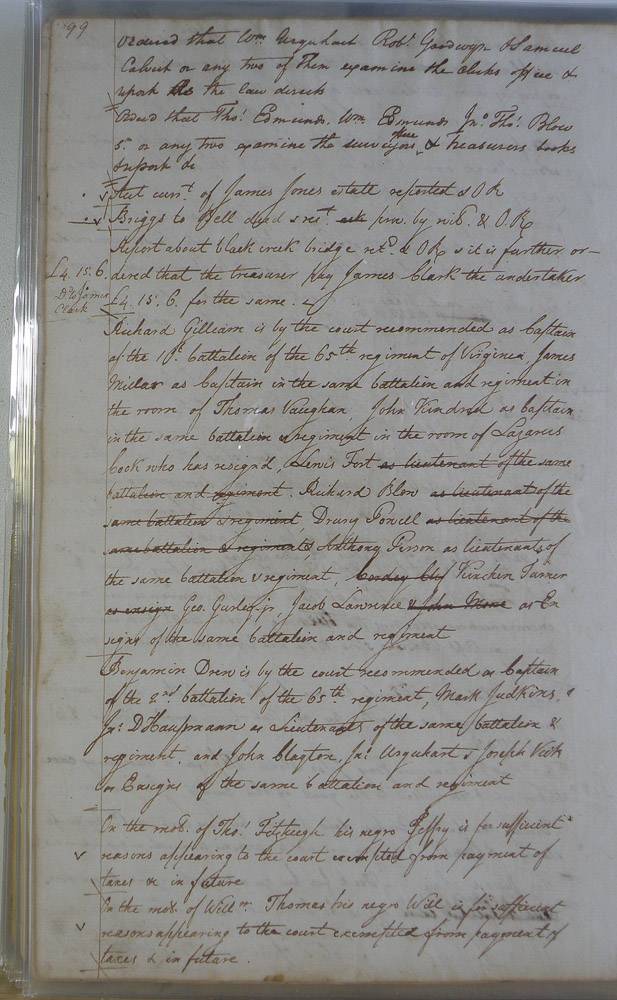 99
Ordered that Wm. Urquhart Robt. Goodwyn & Samuel
Calvert or any two of them examine the clerks office &
report as the law directs
Ordered that Thos. Edmunds, Wm. Edmunds Jno. Thos. Blow
Sr. or any two examine the surveyors office & treasurers books
& report &c
Acct currt. of James Jones estate reported & OR
Briggs to Bell deed & rect. prov. by wit. & O.R
Report about black creek bridge retd. & OR & it is further or-
£4. 15. 6. dered that the treasurer pay James Clark the undertaker
Do. to James Clark £4. 15. 6. for the same.
Richard Gilliam is by the court recommended as Captain
of the 1st. battalion of the 65th regiment of Virginia, James
Millar as Captain in the same battalion and regiment in
the room of Thomas Vaughan, John Kindred as captain
in the same battalion & regiment in the room of Lazarus
Cook who has resign'd, Lewis Fort as lieutenant of the same
battalion and regiment, Richard Blow as lieutenant of the
same battalion & regiment, Drury Powell as lieutenant of the
same battalion & regiment &, Anthony Person as lieutenants of
the same battalion & regiment, Kinchen Turner
as ensign Geo. Gurley jr, Jacob Lawrence & John Mone as En
signs of the same battalion and regiment
Benjamin Drew is by the court recommended as Captain
of the 2nd. battalion of the 65th. regiment, Mark Judkins, &
Jno. D Haussmann as Lieutenants of the same battalion &
regiment, and John Clayton, Jas. Urquhart & Joseph Vick
as Ensigns of the same battalion and regiment
On the mot. of Thos. Fitzhugh his negro Jeffry is for sufficient
reasons appearing to the court exempted from payment of
taxes &c in future
On the mot. of Willm. Thomas his negro Will is for sufficient
reasons appearing to the court exempted from payment of
taxes & in future.